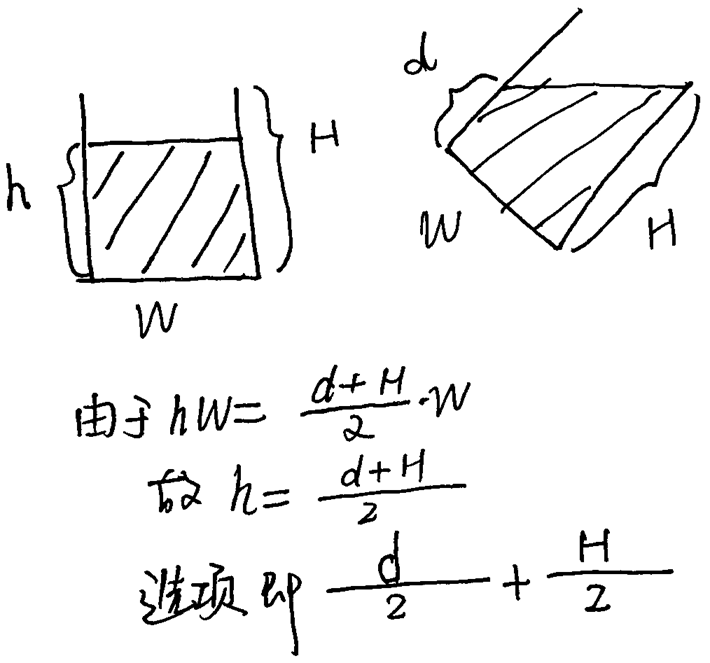 h
H
W
d
W
H
由于 hW = \frac{d+H}{2}·W
故 h = \frac{d+H}{2}
选项即 \frac{d}{2} + \frac{H}{2}